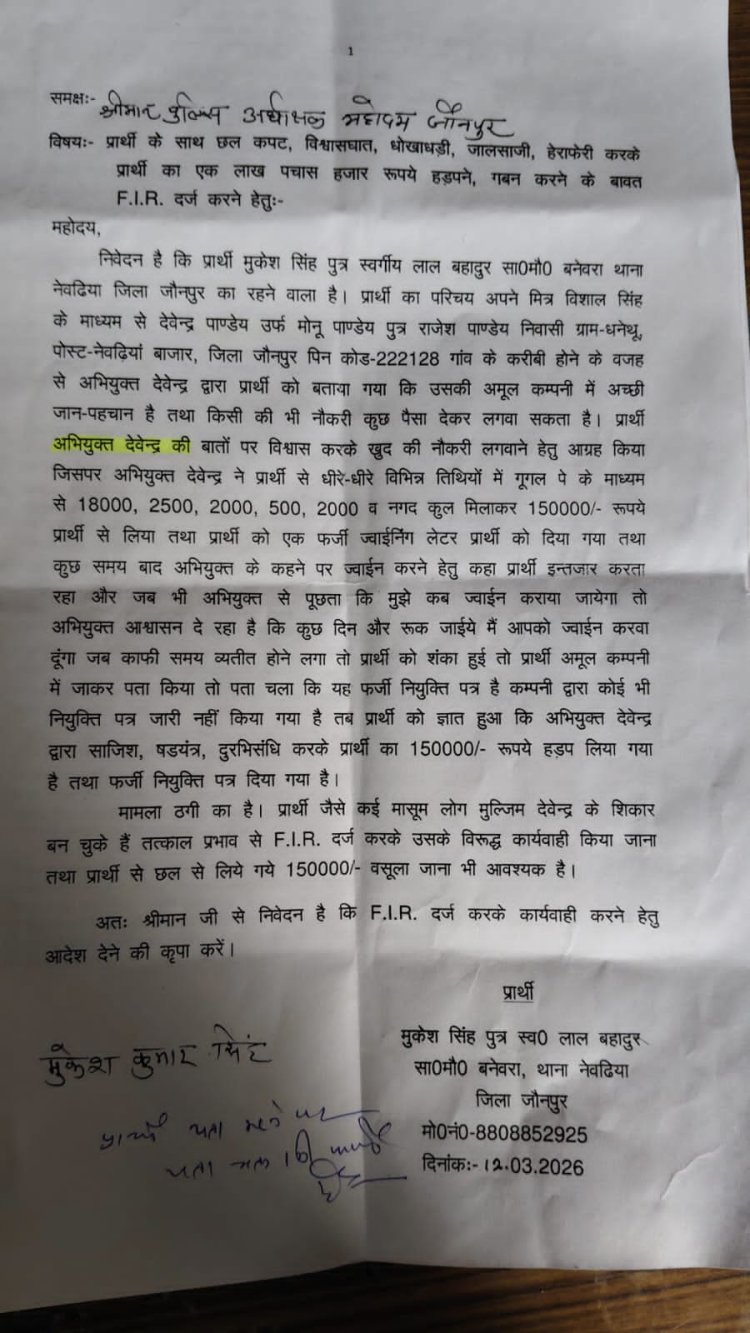 1
समक्षः- श्रीमान पुलिस अधीक्षक महोदय जौनपुर
विषयः- प्रार्थी के साथ छल कपट, विश्वासघात, धोखाधड़ी, जालसाजी, हेराफेरी करके
प्रार्थी का एक लाख पचास हजार रूपये हड़पने, गबन करने के बावत
F.I.R. दर्ज करने हेतुः-
महोदय,
निवेदन है कि प्रार्थी मुकेश सिंह पुत्र स्वर्गीय लाल बहादुर सा0मौ0 बनेवरा थाना
नेवढिया जिला जौनपुर का रहने वाला है। प्रार्थी का परिचय अपने मित्र विशाल सिंह
के माध्यम से देवेन्द्र पाण्डेय उर्फ मोनू पाण्डेय पुत्र राजेश पाण्डेय निवासी ग्राम-धनेथू,
पोस्ट-नेवढ़ियां बाजार, जिला जौनपुर पिन कोड-222128 गांव के करीबी होने के वजह
से अभियुक्त देवेन्द्र द्वारा प्रार्थी को बताया गया कि उसकी अमूल कम्पनी में अच्छी
जान-पहचान है तथा किसी की भी नौकरी कुछ पैसा देकर लगवा सकता है। प्रार्थी
अभियुक्त देवेन्द्र की बातों पर विश्वास करके खुद की नौकरी लगवाने हेतु आग्रह किया
जिसपर अभियुक्त देवेन्द्र ने प्रार्थी से धीरे-धीरे विभिन्न तिथियों में गूगल पे के माध्यम
से 18000, 2500, 2000, 500, 2000 व नगद कुल मिलाकर 150000/- रूपये
प्रार्थी से लिया तथा प्रार्थी को एक फर्जी ज्वाईनिंग लेटर प्रार्थी को दिया गया तथा
कुछ समय बाद अभियुक्त के कहने पर ज्वाईन करने हेतु कहा प्रार्थी इन्तजार करता
रहा और जब भी अभियुक्त से पूछता कि मुझे कब ज्वाईन कराया जायेगा तो
अभियुक्त आश्वासन दे रहा है कि कुछ दिन और रूक जाईये मैं आपको ज्वाईन करवा
दूंगा जब काफी समय व्यतीत होने लगा तो प्रार्थी को शंका हुई तो प्रार्थी अमूल कम्पनी
में जाकर पता किया तो पता चला कि यह फर्जी नियुक्ति पत्र है कम्पनी द्वारा कोई भी
नियुक्ति पत्र जारी नहीं किया गया है तब प्रार्थी को ज्ञात हुआ कि अभियुक्त देवेन्द्र
द्वारा साजिश, षडयंत्र, दुरभिसंधि करके प्रार्थी का 150000/- रूपये हड़प लिया गया
है तथा फर्जी नियुक्ति पत्र दिया गया है।
मामला ठगी का है। प्रार्थी जैसे कई मासूम लोग मुल्जिम देवेन्द्र के शिकार
बन चुके हैं तत्काल प्रभाव से F.I.R. दर्ज करके उसके विरूद्ध कार्यवाही किया जाना
तथा प्रार्थी से छल से लिये गये 150000/- वसूला जाना भी आवश्यक है।
अतः श्रीमान जी से निवेदन है कि F.I.R. दर्ज करके कार्यवाही करने हेतु
आदेश देने की कृपा करें।
प्रार्थी
मुकेश कुमार सिंह
मुकेश सिंह पुत्र स्व0 लाल बहादुर
सा0मौ0 बनेवरा, थाना नेवढिया
जिला जौनपुर
मो0नं0-8808852925
दिनांकः-12.03.2026